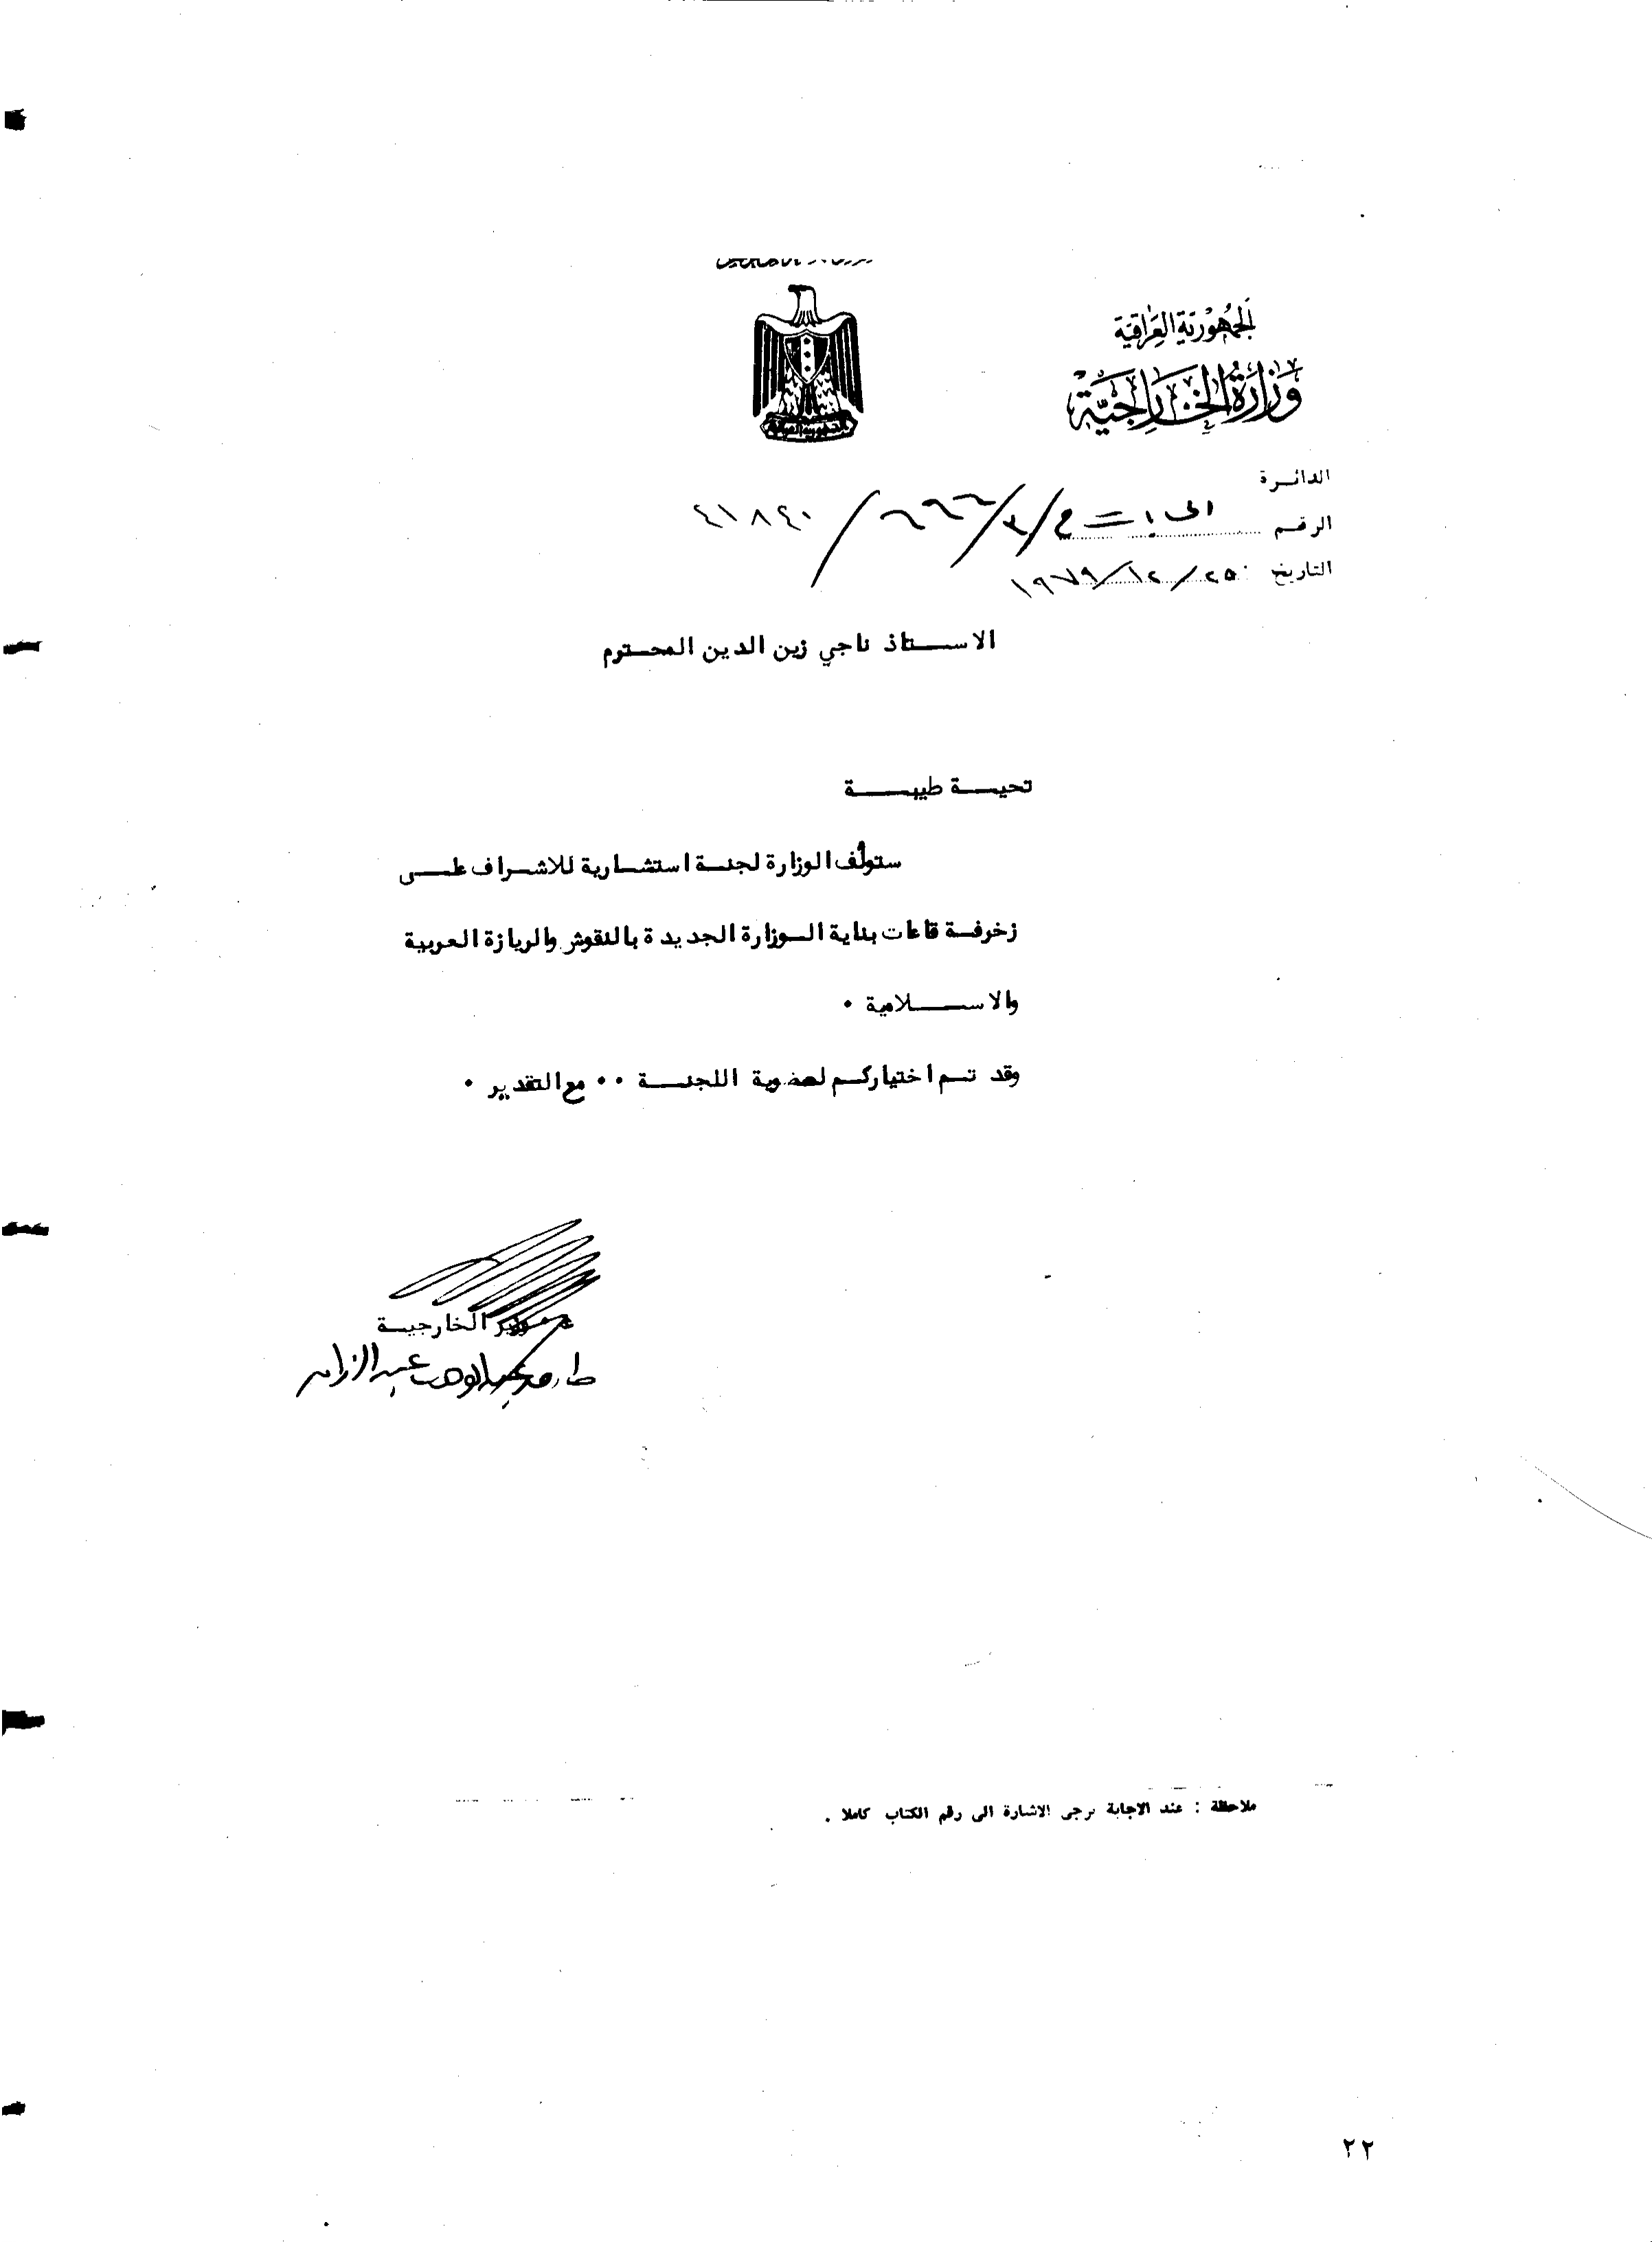 الجمهورية العراقية
وزارة الخارجية
الجمهورية العراقية
الدائرة
الرقم ٤١٨٤٠
التاريخ ٢٥/١٢/١٩٧٩
الاستاذ ناجي زين الدين المحترم
تحية طيبة
ستولف الوزارة لجنة استشارية للاشراف على
زخرفة قاعات بناية الوزارة الجديدة بالنقوش والريازة العربية
والاسلامية .
وقد تم اختياركم لعضوية اللجنة .. مع التقدير .
وزير الخارجية
ملاحظة : عند الاجابة يرجى الاشارة الى رقم الكتاب كاملا .
٢٢